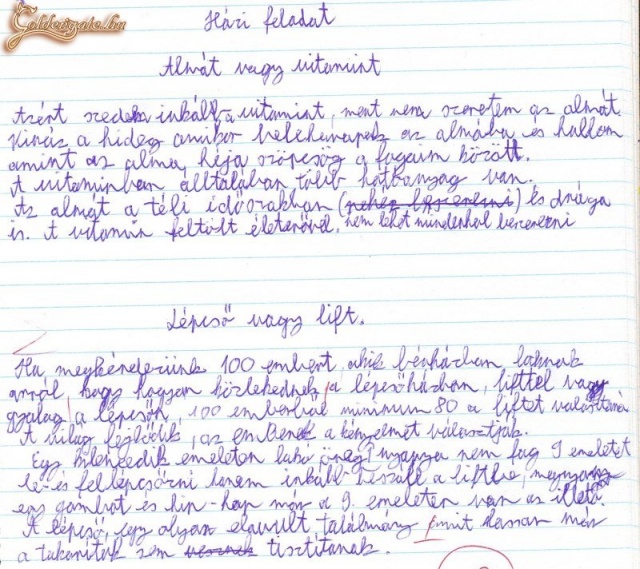 Goldengate.hu
Házi feladat
Almát vagy vitamint
Azért szedek inkább vitamint, mert nem szeretem az almát
Kiráz a hideg amikor beleharapok az almába és hallom
amint az alma héja szörcsög a fogaim között.
A vitaminban álltalában több hatóanyag van.
Az almát a téli időszakban (nehéz beszerezni) és drága
is. A vitamin feltölt életerővel. nem lehet mindenhol beszerezni
Lépcső vagy lift.
Ha megkérdezünk 100 embert, akik bérházban laknak
arról, hogy hogyan közlekednek a lépcsőházban, lifttel vagy
gyalog a lépcsőn, 100 emberből minimum 80 a liftet választaná
A világ fejlődik, az emberek a kényelmet választják.
Egy kilencedik emeleten lakó öreg nyugya nem fog 9 emeletet
le- és fellépcsőzni hanem inkább beszáll a liftbe, megnyom
egy gombot és hip-hop már a 9. emeleten van az illető.
A lépcső, egy olyan elavult találmány amit lassan már
a takarítók sem tisztítanak.